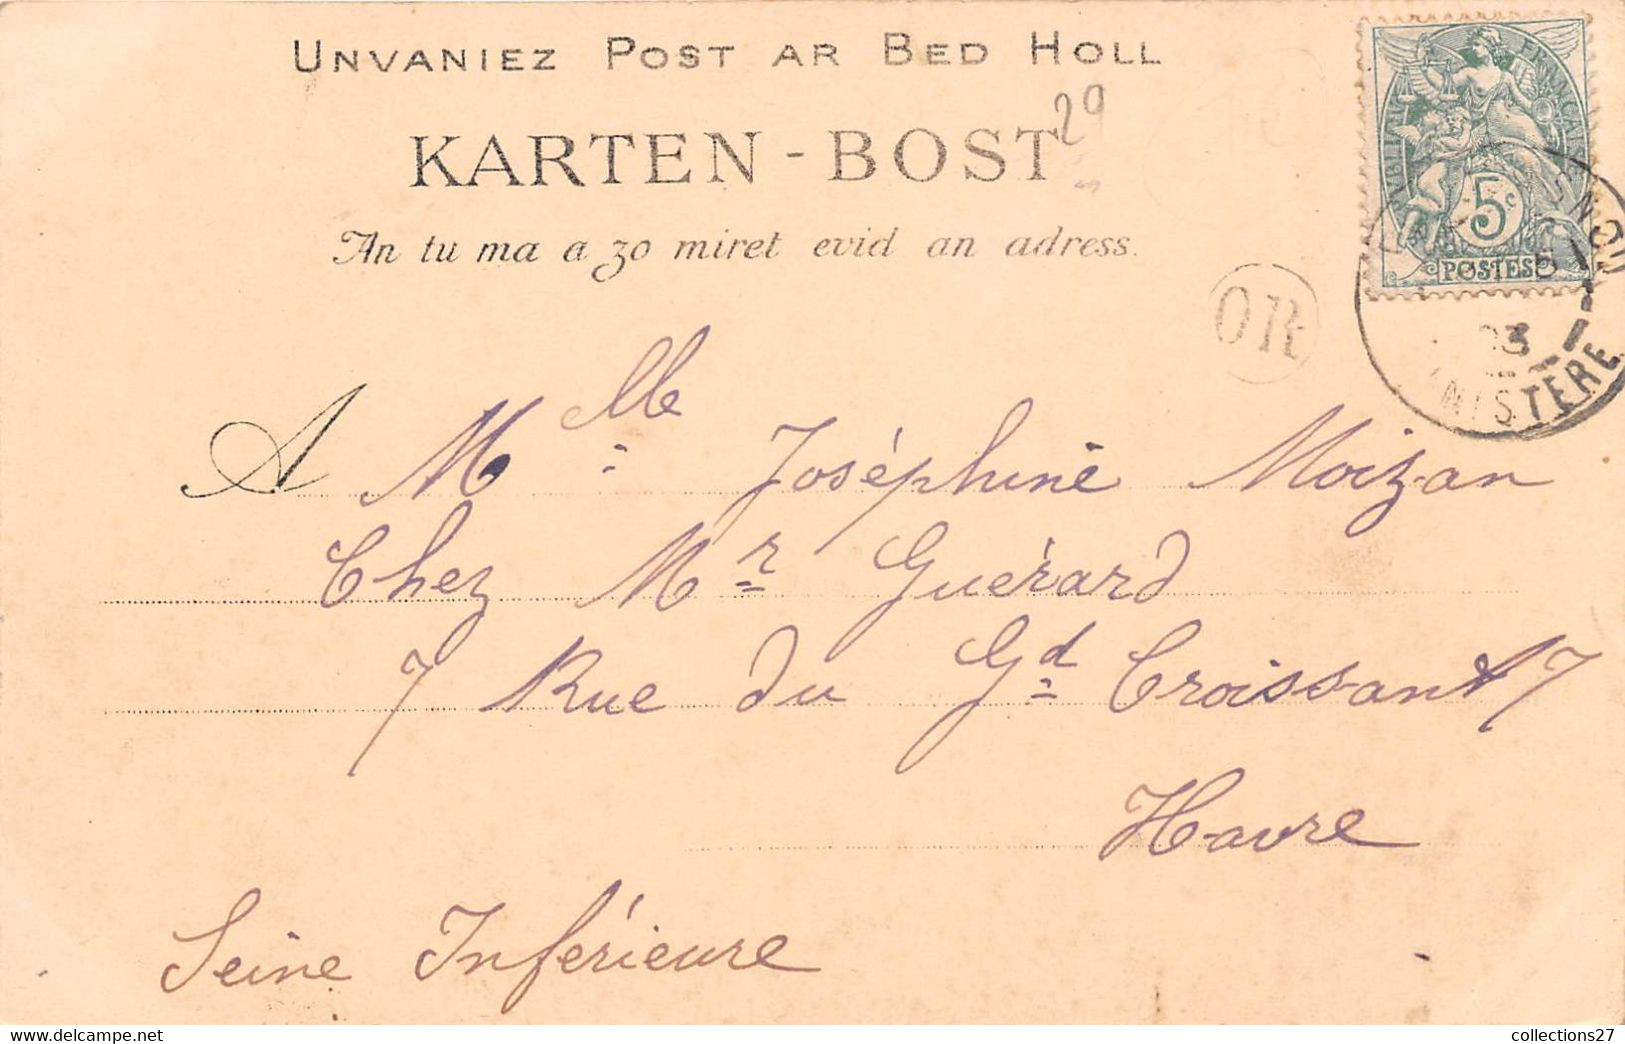 UNVANIEZ POST AR BED HOLL
KARTEN-BOST
29
An tu ma a zo miret evid an adress.
RÉPUBLIQUE FRANÇAISE
5c
POSTES
OR
03
FINISTÈRE
A Mlle Joséphine Moizan
Chez Mr Guérard
7 Rue du Gd Croissant 7
Havre
Seine Inférieure
collections27